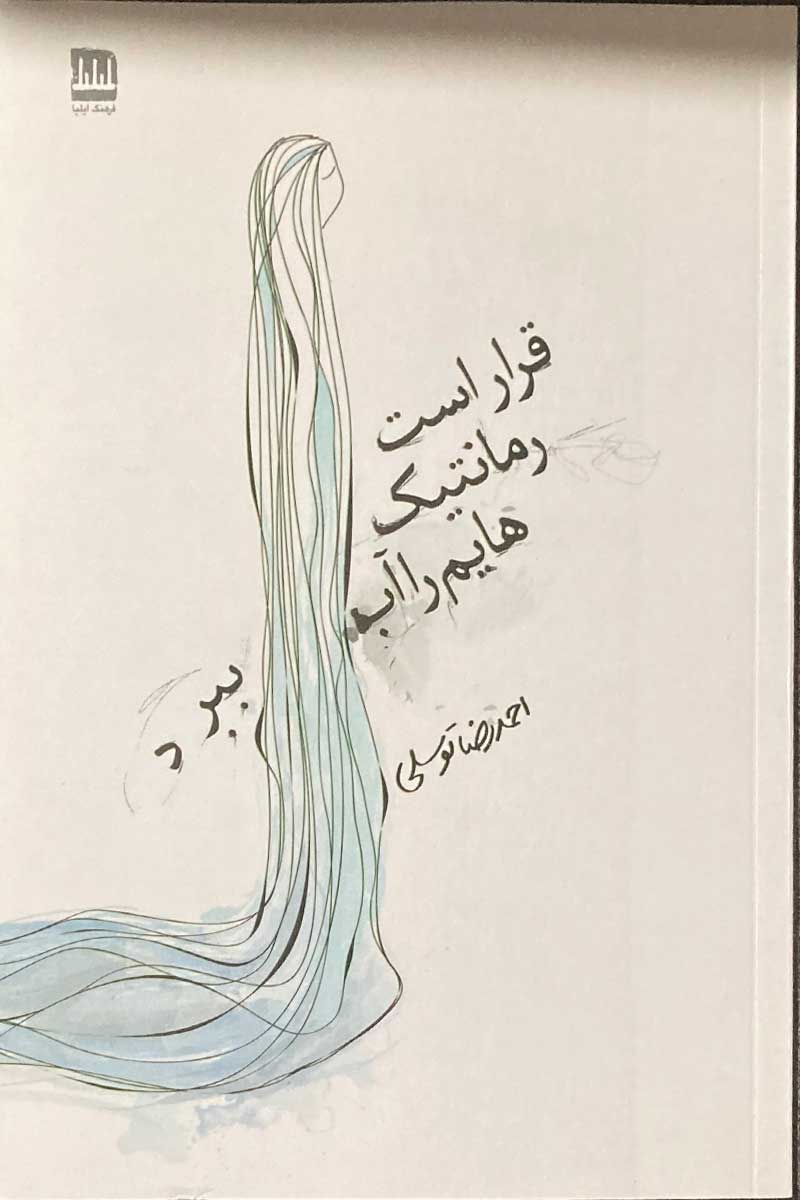 فرهنگ ایلیا
قرار است
رمانتیک
هایم را آب
ببرد
احمدرضا توسلی